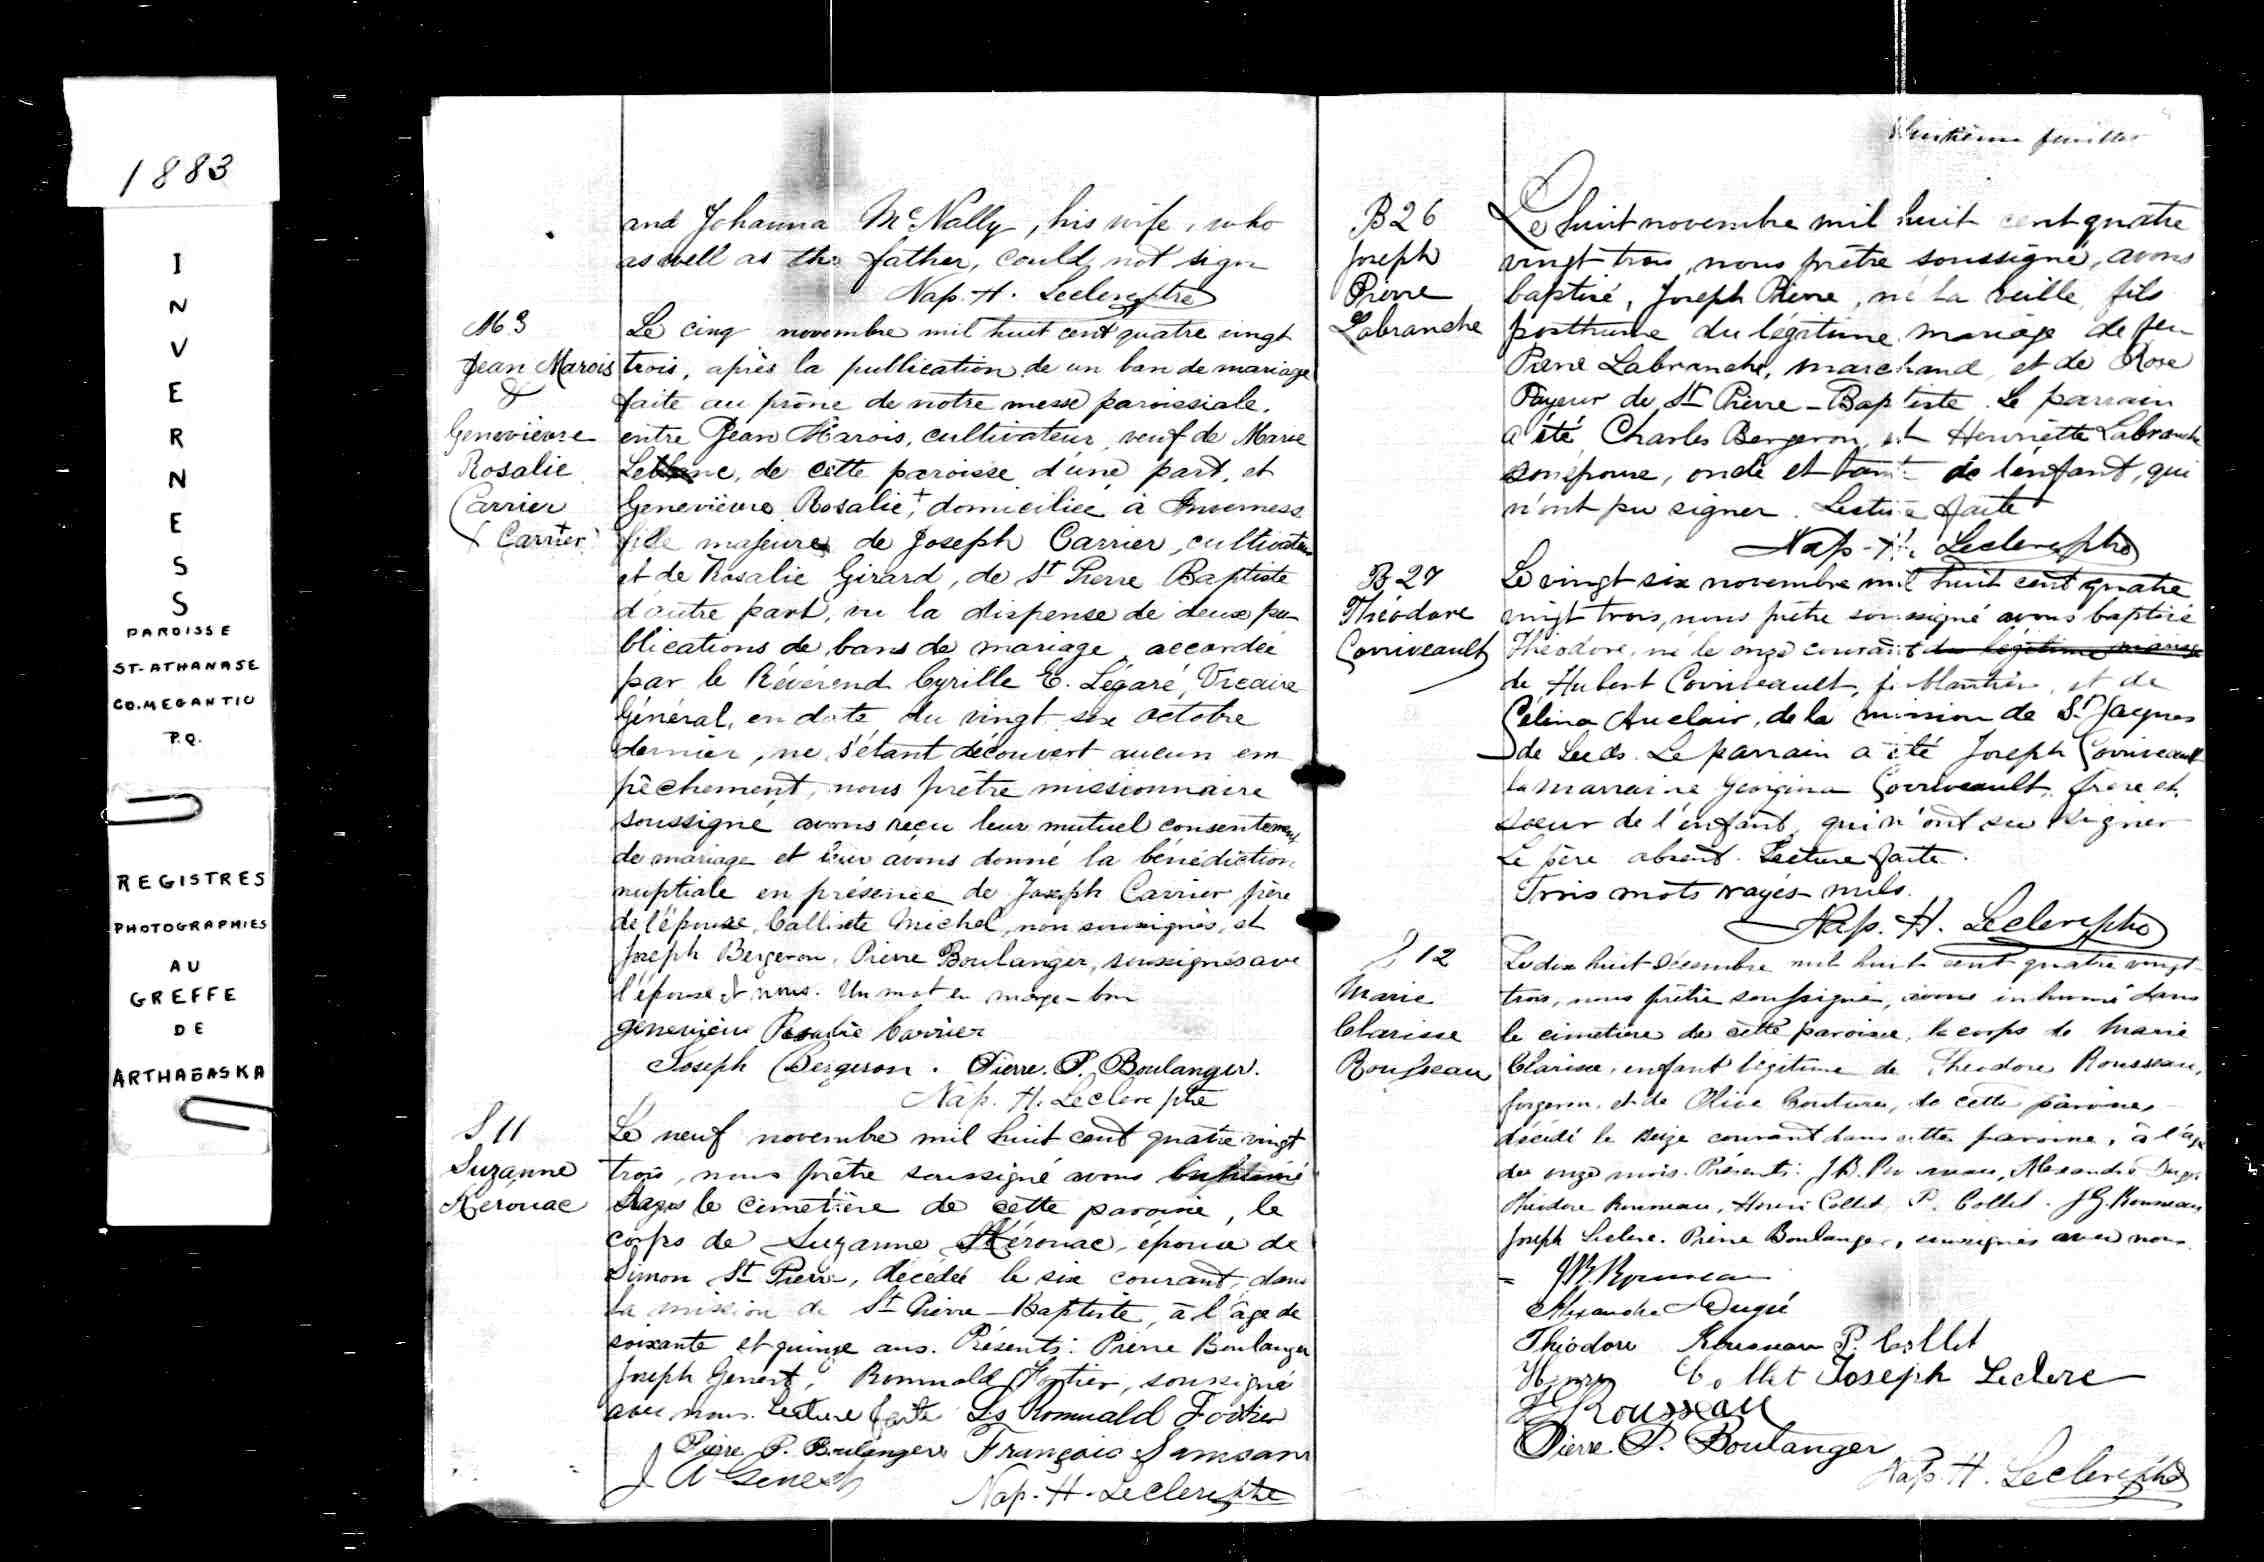 1883
INVERNESS
PAROISSE
ST-ATHANASE
CO. MEGANTIC
P.Q.
REGISTRES
PHOTOGRAPHIES
AU
GREFFE
DE
ARTHABASKA
and Johanna McNally, his wife, who
as well as the father, could not sign
Nap. H. Leclerc ptre
M 3
Jean Marois
&
Genevieve
Rosalie
Carrier
+ Carrier
Le cinq novembre mil huit cent quatre vingt
trois, après la publication de un ban de mariage
faite au prône de notre messe paroissiale,
entre Jean Marois, cultivateur, veuf de Marie
Leblanc, de cette paroisse d'une part, et
Geneviève Rosalie, + domiciliée à Inverness
fille majeure de Joseph Carrier, cultivateur
et de Rosalie Girard, de St Pierre Baptiste
d'autre part, vu la dispense de deux pu
blications de bans de mariage accordée
par le Révérend Cyrille E. Légaré, Vicaire
Général, en date du vingt six octobre
dernier, ne s'étant découvert aucun em
pêchement, nous prêtre missionnaire
soussigné avons reçu leur mutuel consentement
de mariage et leur avons donné la bénédiction
nuptiale en présence de Joseph Carrier père
de l'épouse, Calliste Michel, non soussignés, et
Joseph Bergeron, Pierre Boulanger, soussignés avec
l'épouse & nous. Un mot en marge bon
Geneviève Rosalie Carrier
Joseph Bergeron. Pierre. P. Boulanger.
Nap. H. Leclerc ptre
S 11
Suzanne
Kerouac
Le neuf novembre mil huit cent quatre vingt
trois, nous prêtre soussigné avons inhumé
dans le cimetière de cette paroisse, le
corps de Suzanne Kérouac, épouse de
Simon St Pierre, décédée le six courant, dans
la mission de St Pierre-Baptiste, à l'âge de
soixante et quinze ans. Présents: Pierre Boulanger
Joseph Genest, Romuald Fortier, soussigné
avec nous. Lecture faite Ls Romuald Fortier
Pierre P. Boulanger François Samson
J A Genest
Nap. H. Leclerc ptre
Huitième feuillet
B 26
Joseph
Pierre
Labranche
Le huit novembre mil huit cent quatre
vingt trois, nous prêtre soussigné, avons
baptisé, Joseph Pierre, né la veille, fils
posthume du légitime mariage de feu
Pierre Labranche, marchand, et de Rose
Payeur de St Pierre-Baptiste. Le parrain
a été Charles Bergeron, et Henriette Labranche
son épouse, oncle et tante de l'enfant, qui
n'ont pu signer. Lecture faite
Nap. H. Leclerc ptre
B 27
Théodore
Corriveault
Le vingt six novembre mil huit cent quatre
vingt trois, nous prêtre soussigné avons baptisé
Théodore, né le onze courant du légitime mariage
de Hubert Corriveault, et de
Célina Auclair, de la mission de St Jacques
de Leeds. Le parrain a été Joseph Corriveault
la marraine Georgina Corriveault, frère et
soeur de l'enfant, qui n'ont su signer
Le père absent. Lecture faite.
Trois mots rayés nuls.
Nap. H. Leclerc ptre
S 12
Marie
Clarisse
Rousseau
Le dix huit décembre mil huit cent quatre vingt
trois, nous prêtre soussigné, avons inhumé dans
le cimetière de cette paroisse, le corps de Marie
Clarisse, enfant légitime de Théodore Rousseau,
forgeron, et de Olive Couture, de cette paroisse
décédé le seize courant dans cette paroisse, à l'âge
de onze mois. Présents: J.B. Rousseau, Alexandre Dugré
Théodore Rousseau, Henri Collet, P. Collet. J G. Rousseau
Joseph Leclerc. Pierre Boulanger, soussignés avec nous
J.B. Rousseau
Alexandre Dugré
Théodore Rousseau P. Collet
Henry Collet Joseph Leclerc
J G Rousseau
Pierre. P. Boulanger
Nap. H. Leclerc ptre